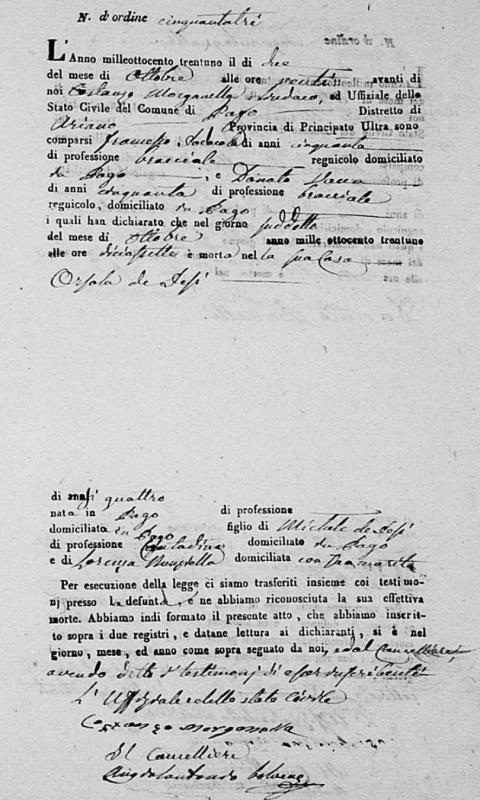 N. d'ordine cinquantatrè
L'Anno milleottocento trentuno il di due
del mese di Ottobre alle ore venti avanti di
noi Costanzo Morganella Sindaco, ed Uffiziale dello
Stato Civile del Comune di Pago Distretto di
Ariano Provincia di Principato Ultra sono
comparsi Francesco di anni cinquanta
di professione bracciale regnicolo domiciliato
in Pago, e Donato
di anni cinquanta di professione bracciale
regnicolo, domiciliato in Pago
i quali han dichiarato che nel giorno suddetto
del mese di Ottobre anno mille ottocento trentuno
alle ore diciassette è morta nel la sua Casa
Orsola de
di anni quattro
nata in Pago di professione
domiciliata in Pago figlio di Michele de
di professione domiciliato in Pago
e di Lorenza domiciliata con suo marito
Per esecuzione della legge ci siamo trasferiti insieme coi testimo-
nj presso la defunta, e ne abbiamo riconosciuta la sua effettiva
morte. Abbiamo indi formato il presente atto, che abbiamo inscrit-
to sopra i due registri, e datane lettura ai dichiaranti, si è nel
giorno, mese, ed anno come sopra segnato da noi, e dal Cancelliere,
avendo detto i testimonj di esser inscribenti
L'Uffiziale dello stato Civile
Costanzo Morganella
Il Cancelliere